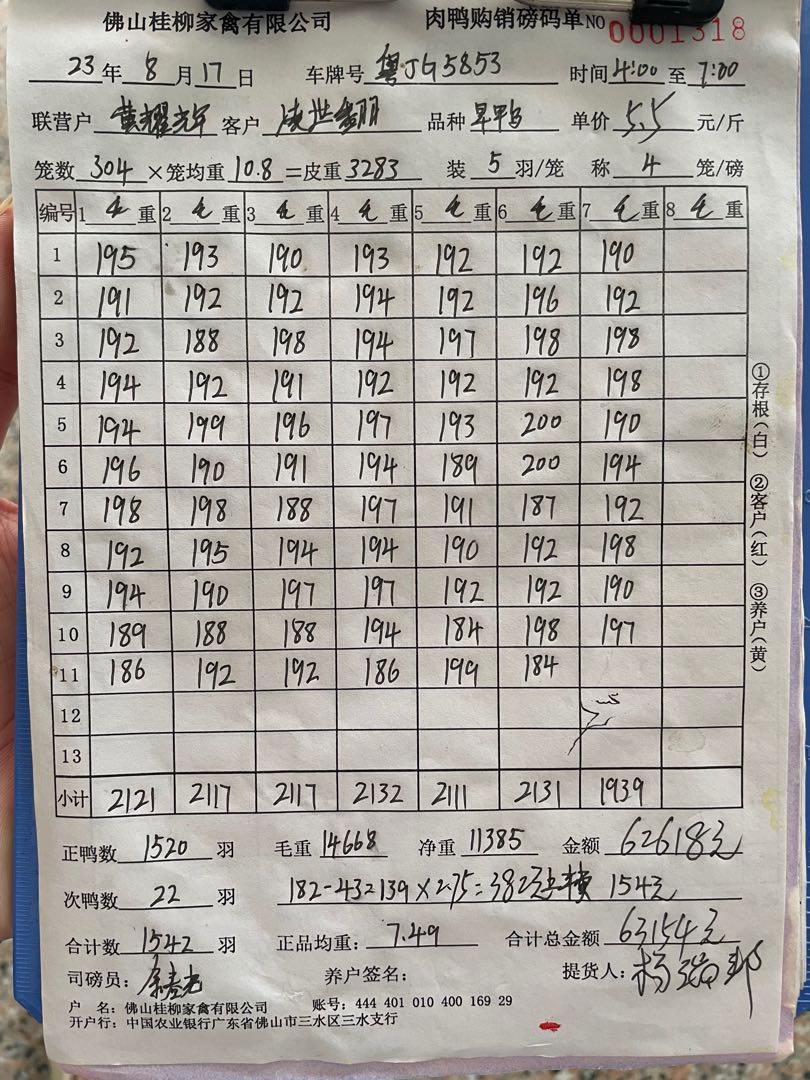 佛山桂柳家禽有限公司 肉鸭购销磅码单 NO 0001318
23年8月17日 车牌号 粤JG5853 时间 4:00 至 7:00
联营户 黄耀辉 客户 品种 旱鸭 单价 5.5 元/斤
笼数 304 ×笼均重 10.8 =皮重 3283 装 5 羽/笼 称 4 笼/磅
编号 1 毛 重 2 毛 重 3 毛 重 4 毛 重 5 毛 重 6 毛 重 7 毛 重 8 毛 重
1 195 193 190 193 192 192 190
2 191 192 192 194 192 196 192
3 192 188 198 194 197 198 198
4 194 192 191 192 192 192 198
5 194 199 196 197 193 200 190
6 196 190 191 194 189 200 194
7 198 198 188 197 191 187 192
8 192 195 194 194 190 192 198
9 194 190 197 197 192 192 190
10 189 188 188 194 184 198 197
11 186 192 192 186 199 184
12
13
小计 2121 2117 2117 2132 2111 2131 1939
正鸭数 1520 羽 毛重 14668 净重 11385 金额 62618元
次鸭数 22 羽 182-43=139×2.75=382元 1544元
合计数 1542 羽 正品均重: 7.49 合计总金额 63154元
司磅员: 养户签名: 提货人:
户 名: 佛山桂柳家禽有限公司 账号: 444 401 010 400 169 29
开户行: 中国农业银行广东省佛山市三水区三水支行
①存根(白) ②客户(红) ③养户(黄)